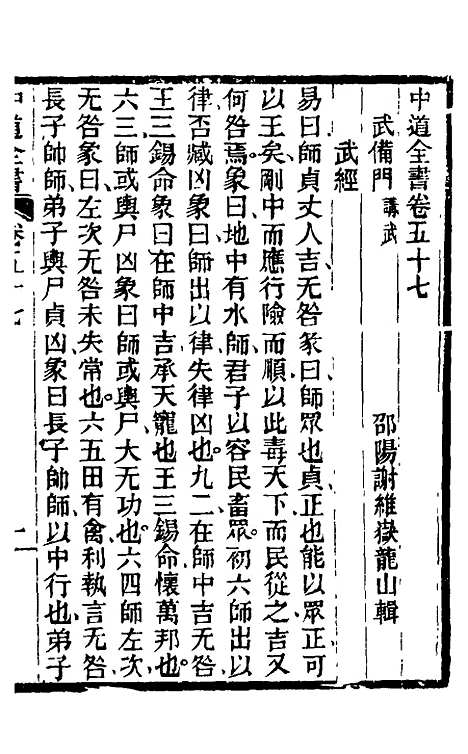 中道全書卷五十七
武備門 講武 邵陽謝維嶽龍山輯
武經
易曰師貞丈人吉无咎彖曰師眾也貞正也能以眾正可
以王矣剛中而應行險而順以此毒天下而民從之吉又
何咎焉象曰地中有水師君子以容民畜眾初六師出以
律否臧凶象曰師出以律失律凶也九二在師中吉无咎
王三錫命象曰在師中吉承天寵也王三錫命懷萬邦也
六三師或輿尸凶象曰師或輿尸大无功也六四師左次
无咎象曰左次无咎未失常也六五田有禽利執言无咎
長子帥師弟子輿尸貞凶象曰長子帥師以中行也弟子
中道全書 卷五十七 一